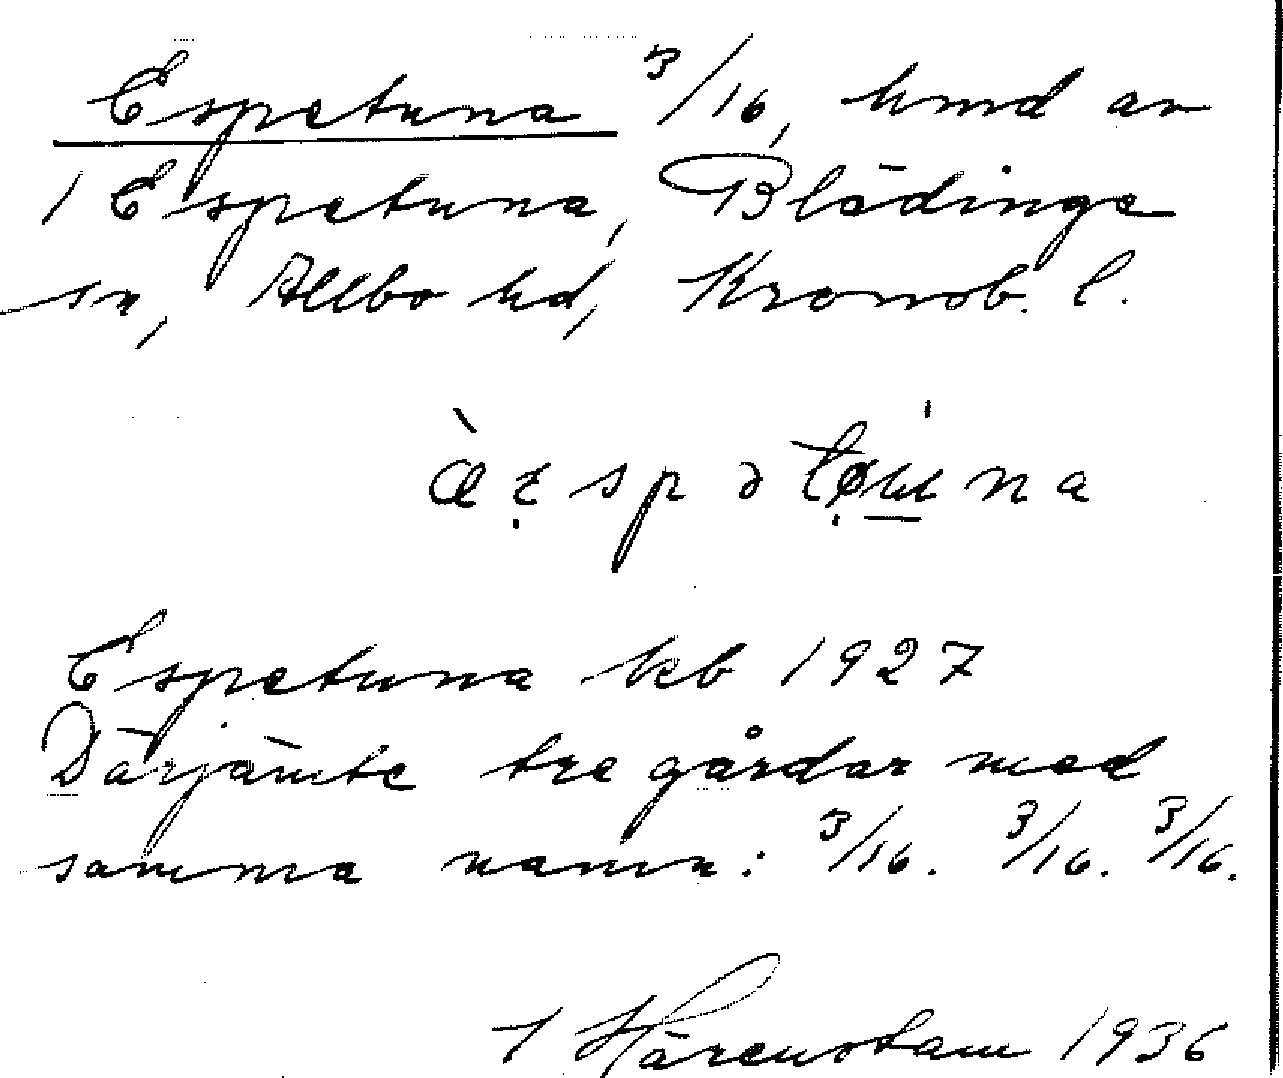 Espetuna 3/16, hmd av
1 Espetuna, Blädinge
sn, Allbo hd, Kronob. l.
Espetuna kb 1927
Därjämte tre gårdar med
samma namn: 3/16. 3/16. 3/16.
Härenstam 1936